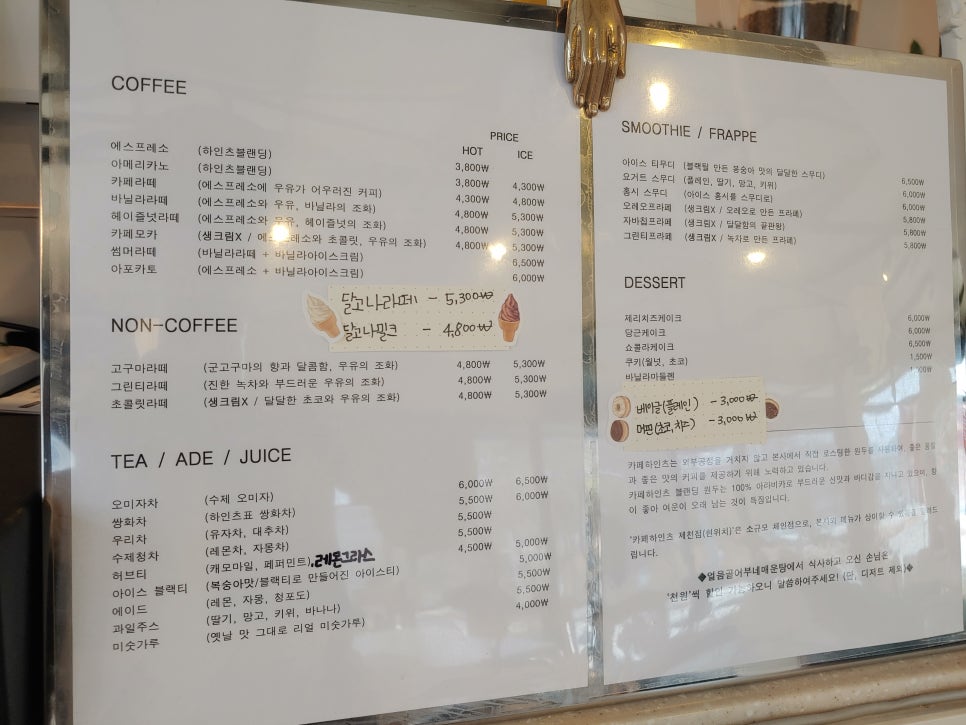 COFFEE
PRICE
HOT ICE
에스프레소 (하인츠블랜딩) 3,800₩
아메리카노 (하인츠블랜딩) 3,800₩ 4,300₩
카페라떼 (에스프레소에 우유가 어우러진 커피) 4,300₩ 4,800₩
바닐라라떼 (에스프레소와 우유, 바닐라의 조화) 4,800₩ 5,300₩
헤이즐넛라떼 (에스프레소와 우유, 헤이즐넛의 조화) 4,800₩ 5,300₩
카페모카 (생크림X / 에스프레소와 초콜릿, 우유의 조화) 4,800₩ 5,300₩
썸머라떼 (바닐라라떼 + 바닐라아이스크림) 6,500₩
아포카토 (에스프레소 + 바닐라아이스크림) 6,000₩
달고나라떼 - 5,300₩
달고나밀크 - 4,800₩
NON-COFFEE
고구마라떼 (군고구마의 향과 달콤함, 우유의 조화) 4,800₩ 5,300₩
그린티라떼 (진한 녹차와 부드러운 우유의 조화) 4,800₩ 5,300₩
초콜릿라떼 (생크림X / 달달한 초코와 우유의 조화) 4,800₩ 5,300₩
TEA / ADE / JUICE
오미자차 (수제 오미자) 6,000₩ 6,500₩
쌍화차 (하인츠표 쌍화차) 5,500₩ 6,000₩
우리차 (유자차, 대추차) 5,500₩
수제청차 (레몬차, 자몽차) 5,500₩
허브티 (캐모마일, 페퍼민트), 레몬그라스 4,500₩ 5,000₩
아이스 블랙티 (복숭아맛/블랙티로 만들어진 아이스티) 5,000₩
에이드 (레몬, 자몽, 청포도) 5,500₩
과일주스 (딸기, 망고, 키위, 바나나) 5,500₩
미숫가루 (옛날 맛 그대로 리얼 미숫가루) 4,000₩
SMOOTHIE / FRAPPE
아이스 티무디 (블랙틸 만든 몽숭아 맛의 달달한 스무디) 6,500₩
요거트 스무디 (플레인, 딸기, 망고, 키위) 6,000₩
홍시 스무디 (아이스 홍시를 스무디로) 6,000₩
오레오프라페 (생크림X / 오레오로 만든 프라페) 5,800₩
자바칩프라페 (생크림X / 달달함의 끝판왕) 5,800₩
그린티프라페 (생크림X / 녹차로 만든 프라페) 5,800₩
DESSERT
제리치즈케이크 6,000₩
당근케이크 6,000₩
쇼콜라케이크 6,500₩
쿠키(월넛, 초코) 1,500₩
바닐라마들렌
베이글(플레인) - 3,000₩
머핀(초코, 치즈) - 3,000₩
카페하인츠는 외부공장을 거치지 않고 본사에서 직접 로스팅한 원두를 사용하여, 좋은 품질
과 좋은 맛의 커피를 제공하기 위해 노력하고 있습니다.
카페하인츠 블랜딩 원두는 100% 아라비카로 부드러운 신맛과 바디감을 지니고 있으며, 향
이 좋아 여운이 오래 남는 것이 특징입니다.
'카페하인츠 제천점(헌위치)'은 소규모 체인점으로, 본사와 메뉴가 상이할 수
립니다.
◆얼음골어부네매운탕에서 식사하고 오신 손님은
'천원'씩 할인 가능하오니 말씀하여주세요! (단, 디저트 제외)◆